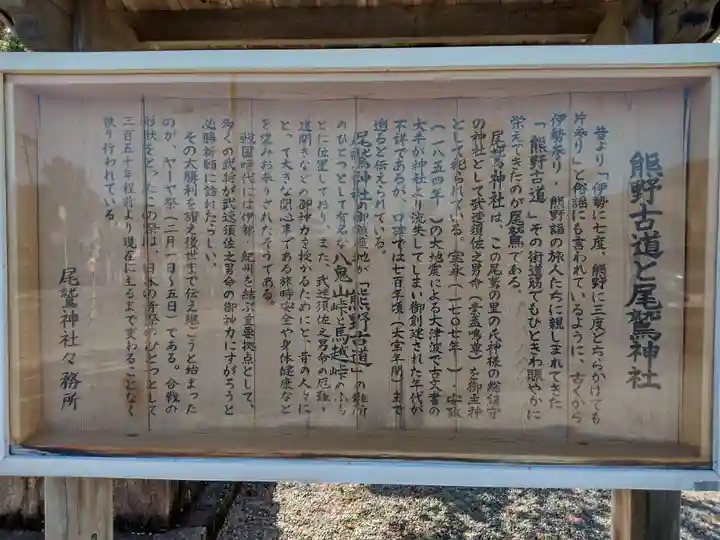 熊野古道と尾鷲神社
昔より「伊勢に七度、熊野に三度どちらかけても
片参り」と俗謡にも言われているように、古くから
伊勢参り・熊野詣の旅人たちに親しまれてきた
「熊野古道」その街道筋でもひときわ賑やかに
栄えてきたのが尾鷲である。
尾鷲神社は、この尾鷲の里の氏神様の総鎮守
の神社として武速須佐之男命(素盞嗚尊)を御主神
として祀られている。宝永(一七〇七年)・安政
(一八五四年)の大地震による大津波で古文書の
大半が神社より流失してしまい御創建された年代が
不詳であるが、口碑では七百年頃(大宝年間)まで
遡ると伝えられている。
尾鷲神社の御鎮座地が「熊野古道」の難所
のひとつとして有名な八鬼山峠と馬越峠のふも
とに位置しており、また、武速須佐之男命の厄難・
道開きなどの御神力を授かるために、昔の人々に
とって大きな関心事である旅時安全や身体健康など
を望みお参りされたそうである。
戦国時代には伊勢・紀州を結ぶ重要拠点として、
多くの武将が武速須佐之男命の御神力にすがろうと
必勝祈願に訪れたらしい。
その大勝利を讃え後世まで伝え継ごうと始まった
のが、ヤーヤ祭(二月一日〜五日)である。合戦の
形状をとったこの祭は、日本の奇祭のひとつとして
三百五十年程前より現在に至るまで変わることなく
執り行われている。
尾鷲神社々務所